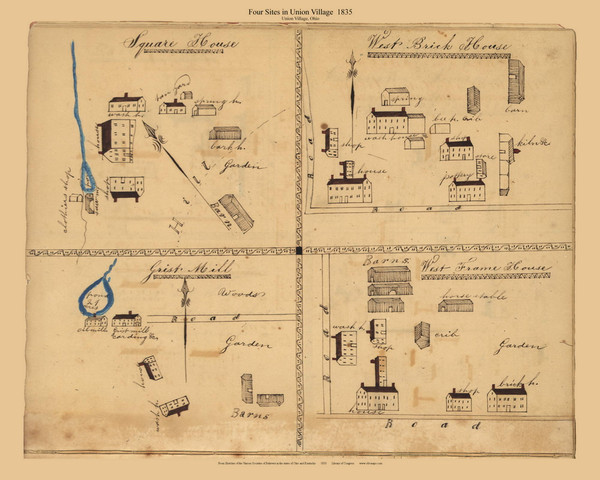 Four Sites in Union Village 1835
Union Village, Ohio
Square House
tan yard
wash h.
spring h.
house
bark h.
Garden
shop
clothiers shop
Barn
West Brick House
spring
barn
bee h.
crib
wash house
shop
shop
kiln
store
house
pottery
Road
Road
Grist Mill
Woods
pond
oil mill
Grist mill
Carding
Road
Garden
Barns
Barns.
West Frame House
horse stable
wash h.
shop
crib
Garden
Road
house
shop
brick h.
Road